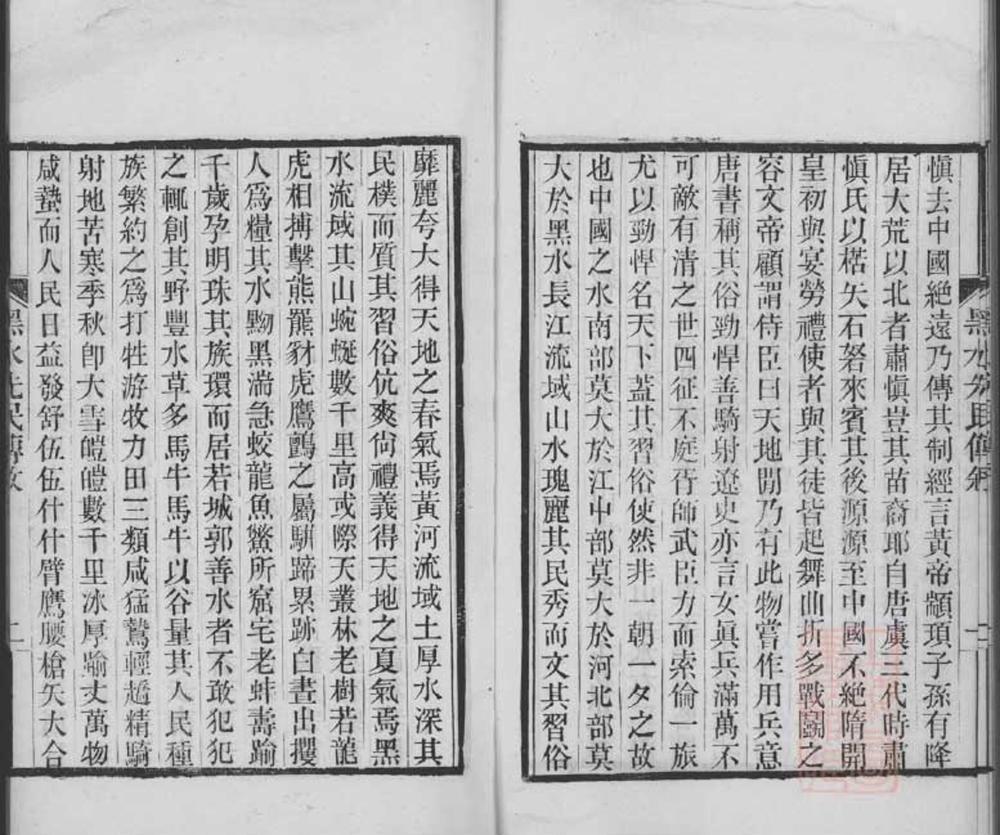 慎去中國絕遠乃傳其制經言黃帝顓頊子孫有降
居大荒以北者肅慎豈其苗裔耶自唐虞三代時肅
慎氏以楛矢石砮來賓其後源源至中國不絕隋開
皇初與宴勞禮使者與其徒皆起舞曲折多戰鬭之
容文帝顧謂侍臣曰天地閒乃有此物嘗作用兵意
唐書稱其俗勁悍善騎射遼史亦言女眞兵滿萬不
可敵有清之世四征不庭胥師武臣力而索倫一旅
尤以勁悍名天下蓋其習俗使然非一朝一夕之故
也中國之水南部莫大於江中部莫大於河北部莫
大於黑水長江流域山水瑰麗其民秀而文其習俗
黑水先民傳敘
二
靡麗夸大得天地之春氣焉黃河流域土厚水深其
民樸而質其習俗伉爽尙禮義得天地之夏氣焉黑
水流域其山蜿蜒數千里高或際天叢林老樹若龍
虎相搏擊熊羆豺虎鷹鸇之屬駢蹄累跡白晝出攫
人爲糧其水黝黑湍急蛟龍魚鱉所窟宅老蚌壽踰
千歲孕明珠其族環而居若城郭善水者不敢犯犯
之輒創其野豐水草多馬牛馬牛以谷量其人民種
族繁約之爲打牲游牧力田三類咸猛鷙輕趫精騎
射地苦寒季秋卽大雪皚皚數千里冰厚踰丈萬物
咸蟄而人民日益發舒伍伍什什臂鷹腰槍矢大合
黑水先民傳敘
二